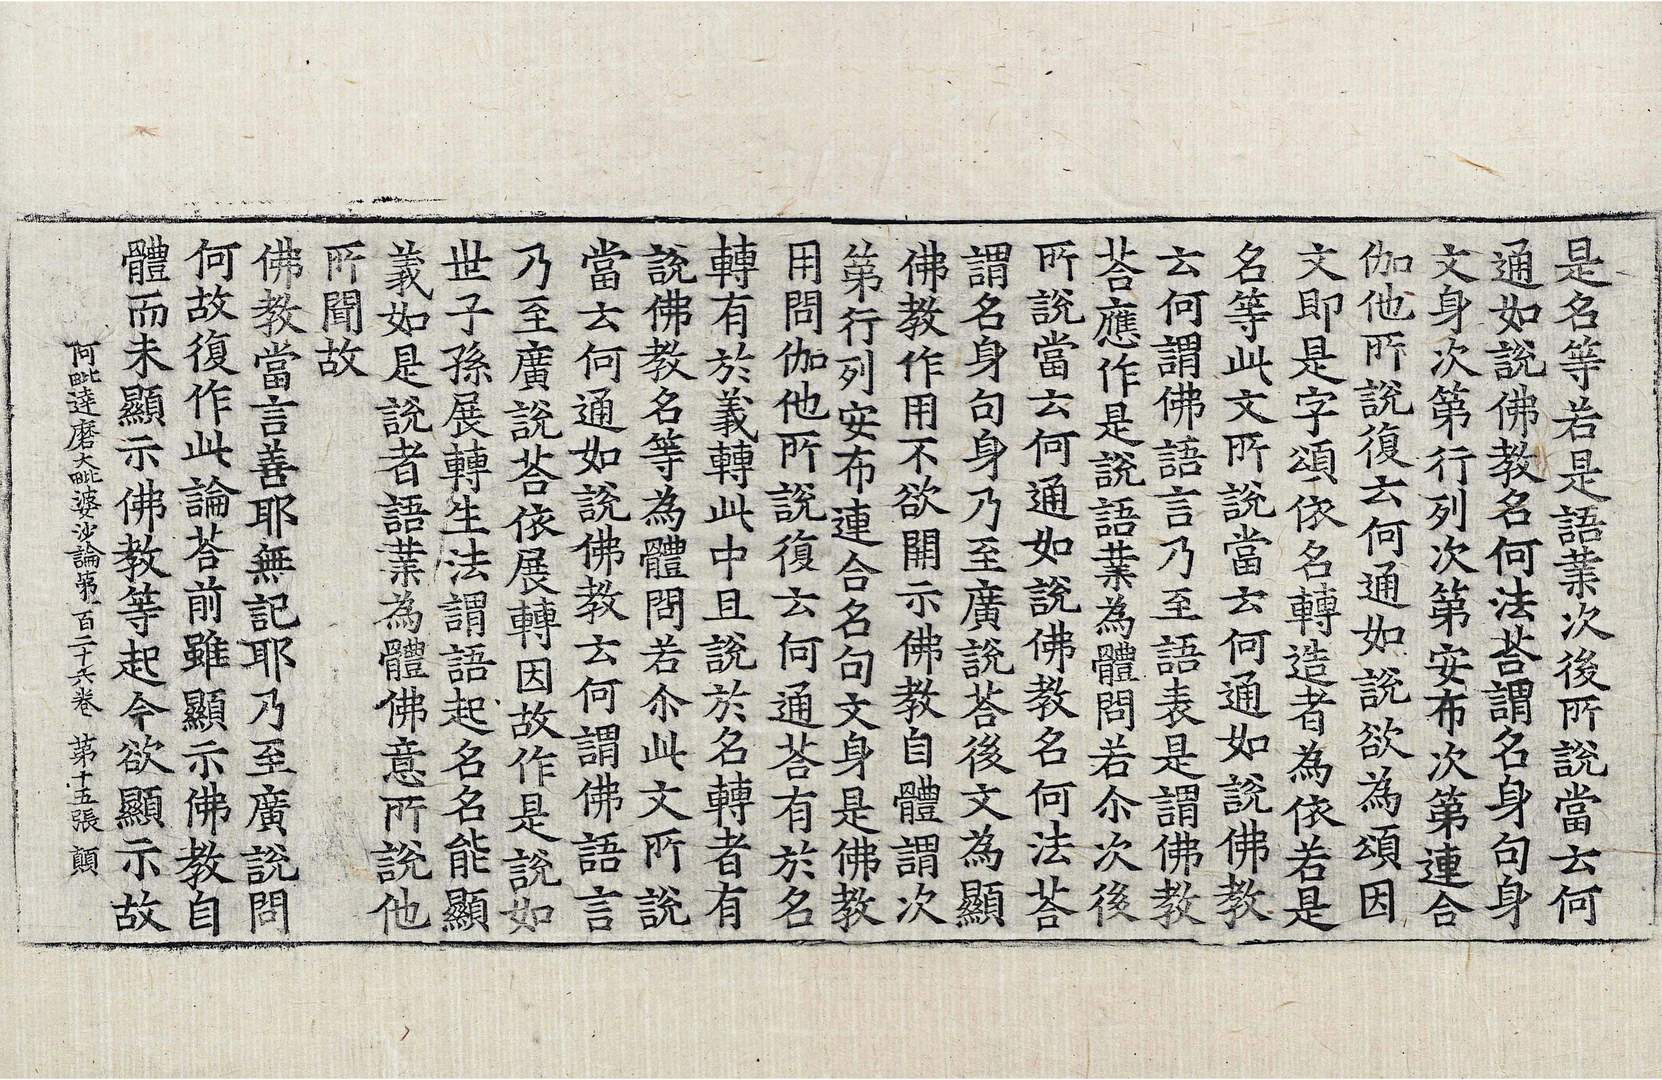 是名等若是語業次後所說當云何
通如說佛教名何法荅謂名身句身
文身次第行列次第安布次第連合
伽他所說復云何通如說欲為頌因
文即是字頌依名轉造者為依若是
名等此文所說當云何通如說佛教
云何謂佛語言乃至語表是謂佛教
荅應作是說語業為體問若尒次後
所說當云何通如說佛教名何法荅
謂名身句身乃至廣說荅後文為顯
佛教作用不欲開示佛教自體謂次
第行列安布連合名句文身是佛教
用問伽他所說復云何通荅有於名
轉有於義轉此中且說於名轉者有
說佛教名等為體問若尒此文所說
當云何通如說佛教云何謂佛語言
乃至廣說荅依展轉因故作是說如
世子孫展轉生法謂語起名名能顯
義如是說者語業為體佛意所說他
所聞故
佛教當言善耶無記耶乃至廣說問
何故復作此論荅前雖顯示佛教自
體而未顯示佛教等起今欲顯示故
阿毗達磨大毗婆沙論第一百二十六卷 第十五張 顛